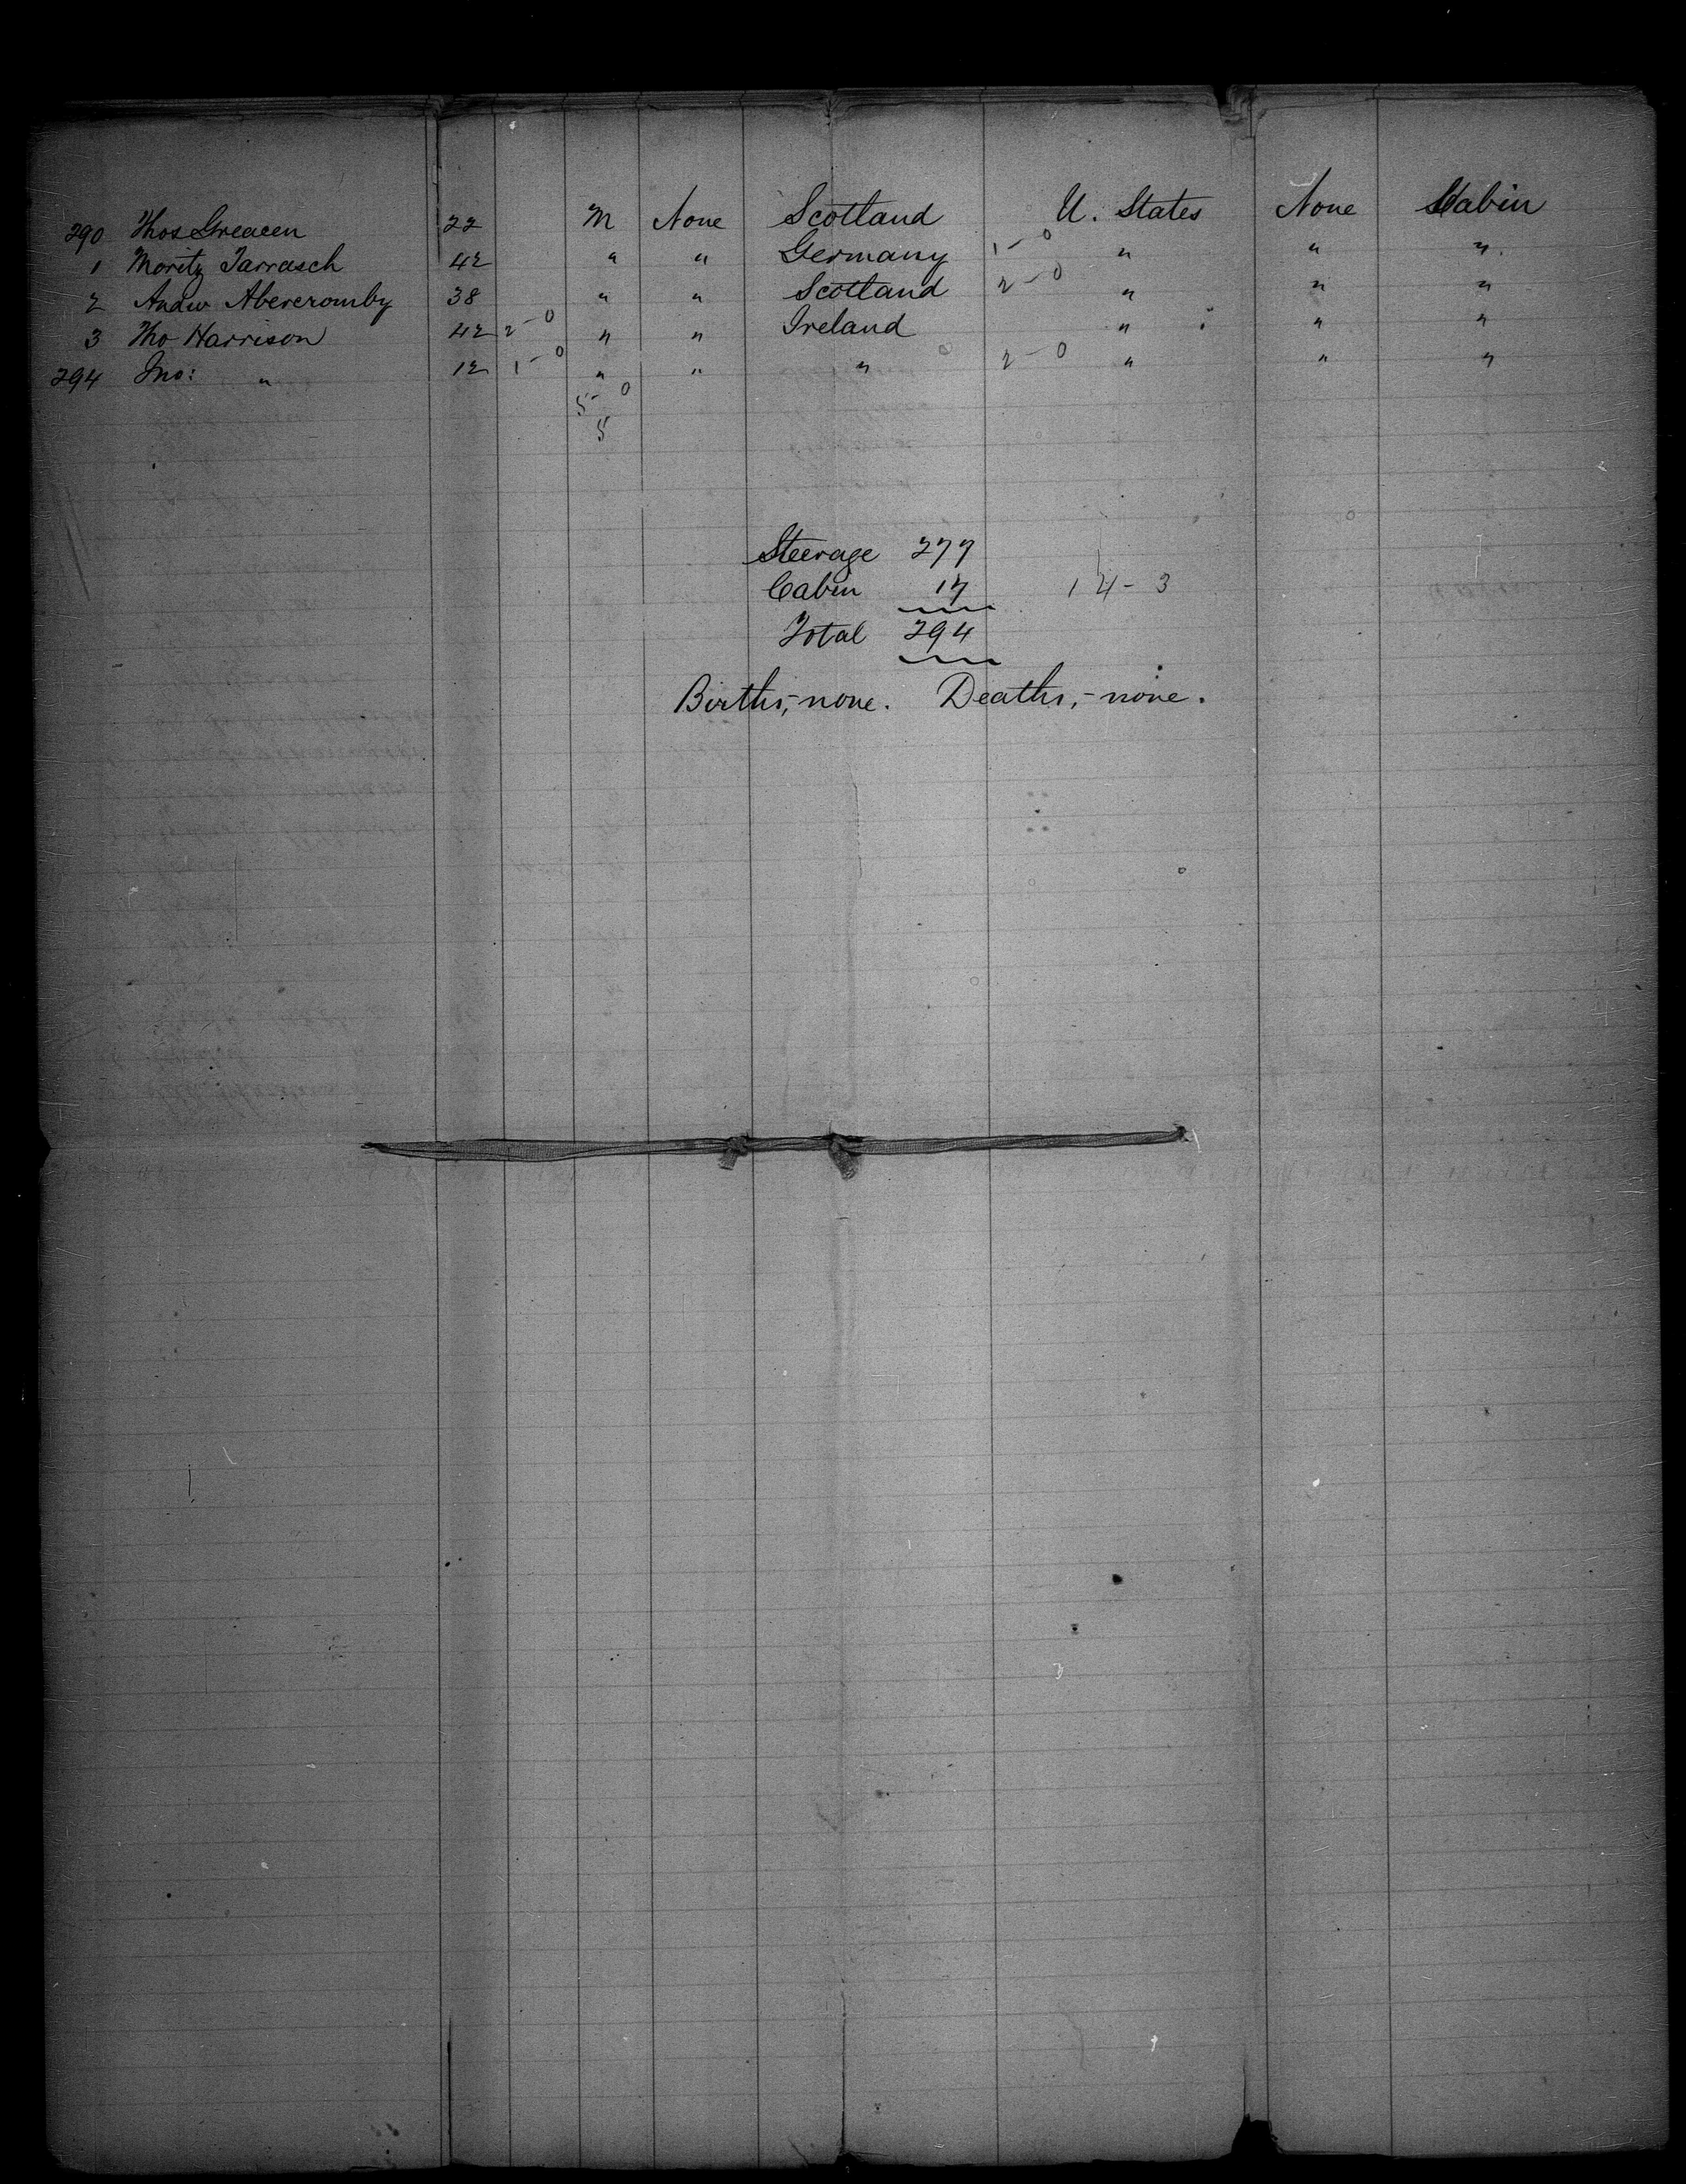 290 Thos Greacen 22 M None Scotland U. States None Cabin
1 Moritz Tarrasch 42 " " Germany 1-0 " " "
2 Andw Abercromby 38 " " Scotland 2-0 " " "
3 Tho Harrison 42 2-0 " " Ireland " " "
294 Jno: " 12 1-0 " " " 2-0 " " "
5-0
5
Steerage 277
Cabin 17 14-3
Total 294
Births,-none. Deaths,-none.